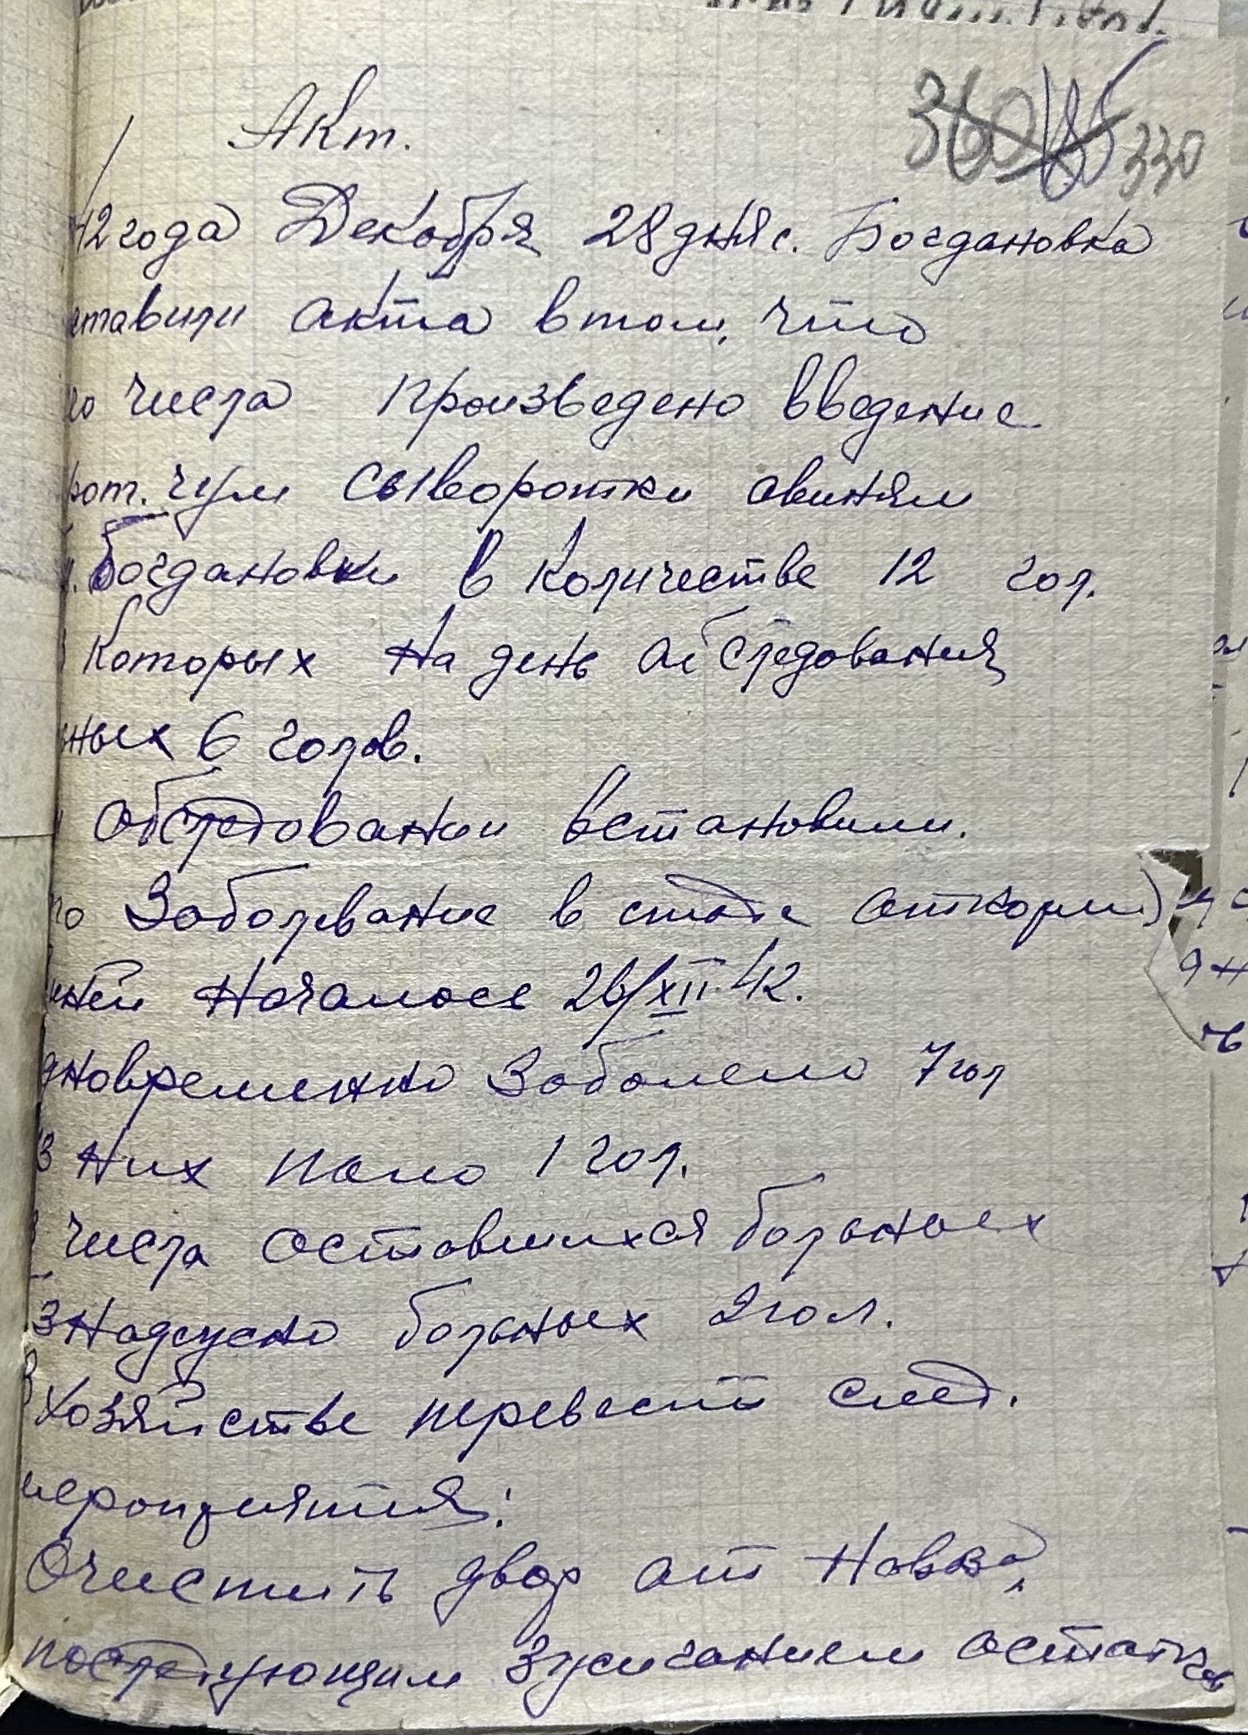 360 185 330
Акт.
42 года Декабря 28 дня с. Богдановка
ставили акта в том, что
го числа произведено введение
рот. чум сыворотки свиням
Богдановки в количестве 12 гол.
которых на день обследования
ных 6 голов.
обследовании встановили.
то Заболевание в стаде откорм
ней началось 26/XII 42.
дновременно Заболело 7 гол
з них пало 1 гол.
числа оставшихся больных
больных 2 гол.
В хозяйстве перевести след.
мероприятия:
Очистить двор от навоза,
последующим зжиганием остатков